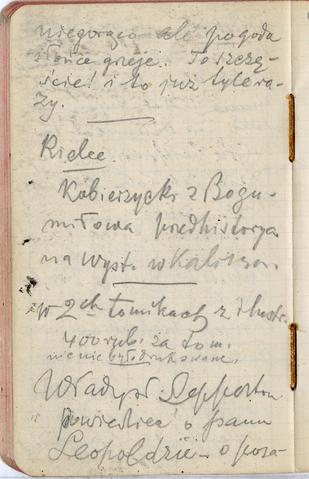 niegorąco ale pogoda
słońce grzeje. To szczę-
ście! i to już tyle ra-
zy.
Kielce
Kobierzycki z Bogu-
miłowa prehistorya
na wyst. w Kaliszu.
w 2ch tomikach z ilustr.
400 rub. za tom.
nic nie było drukowane.
Władysł.
powiedzieć o panu
Leopoldzie – o poza-